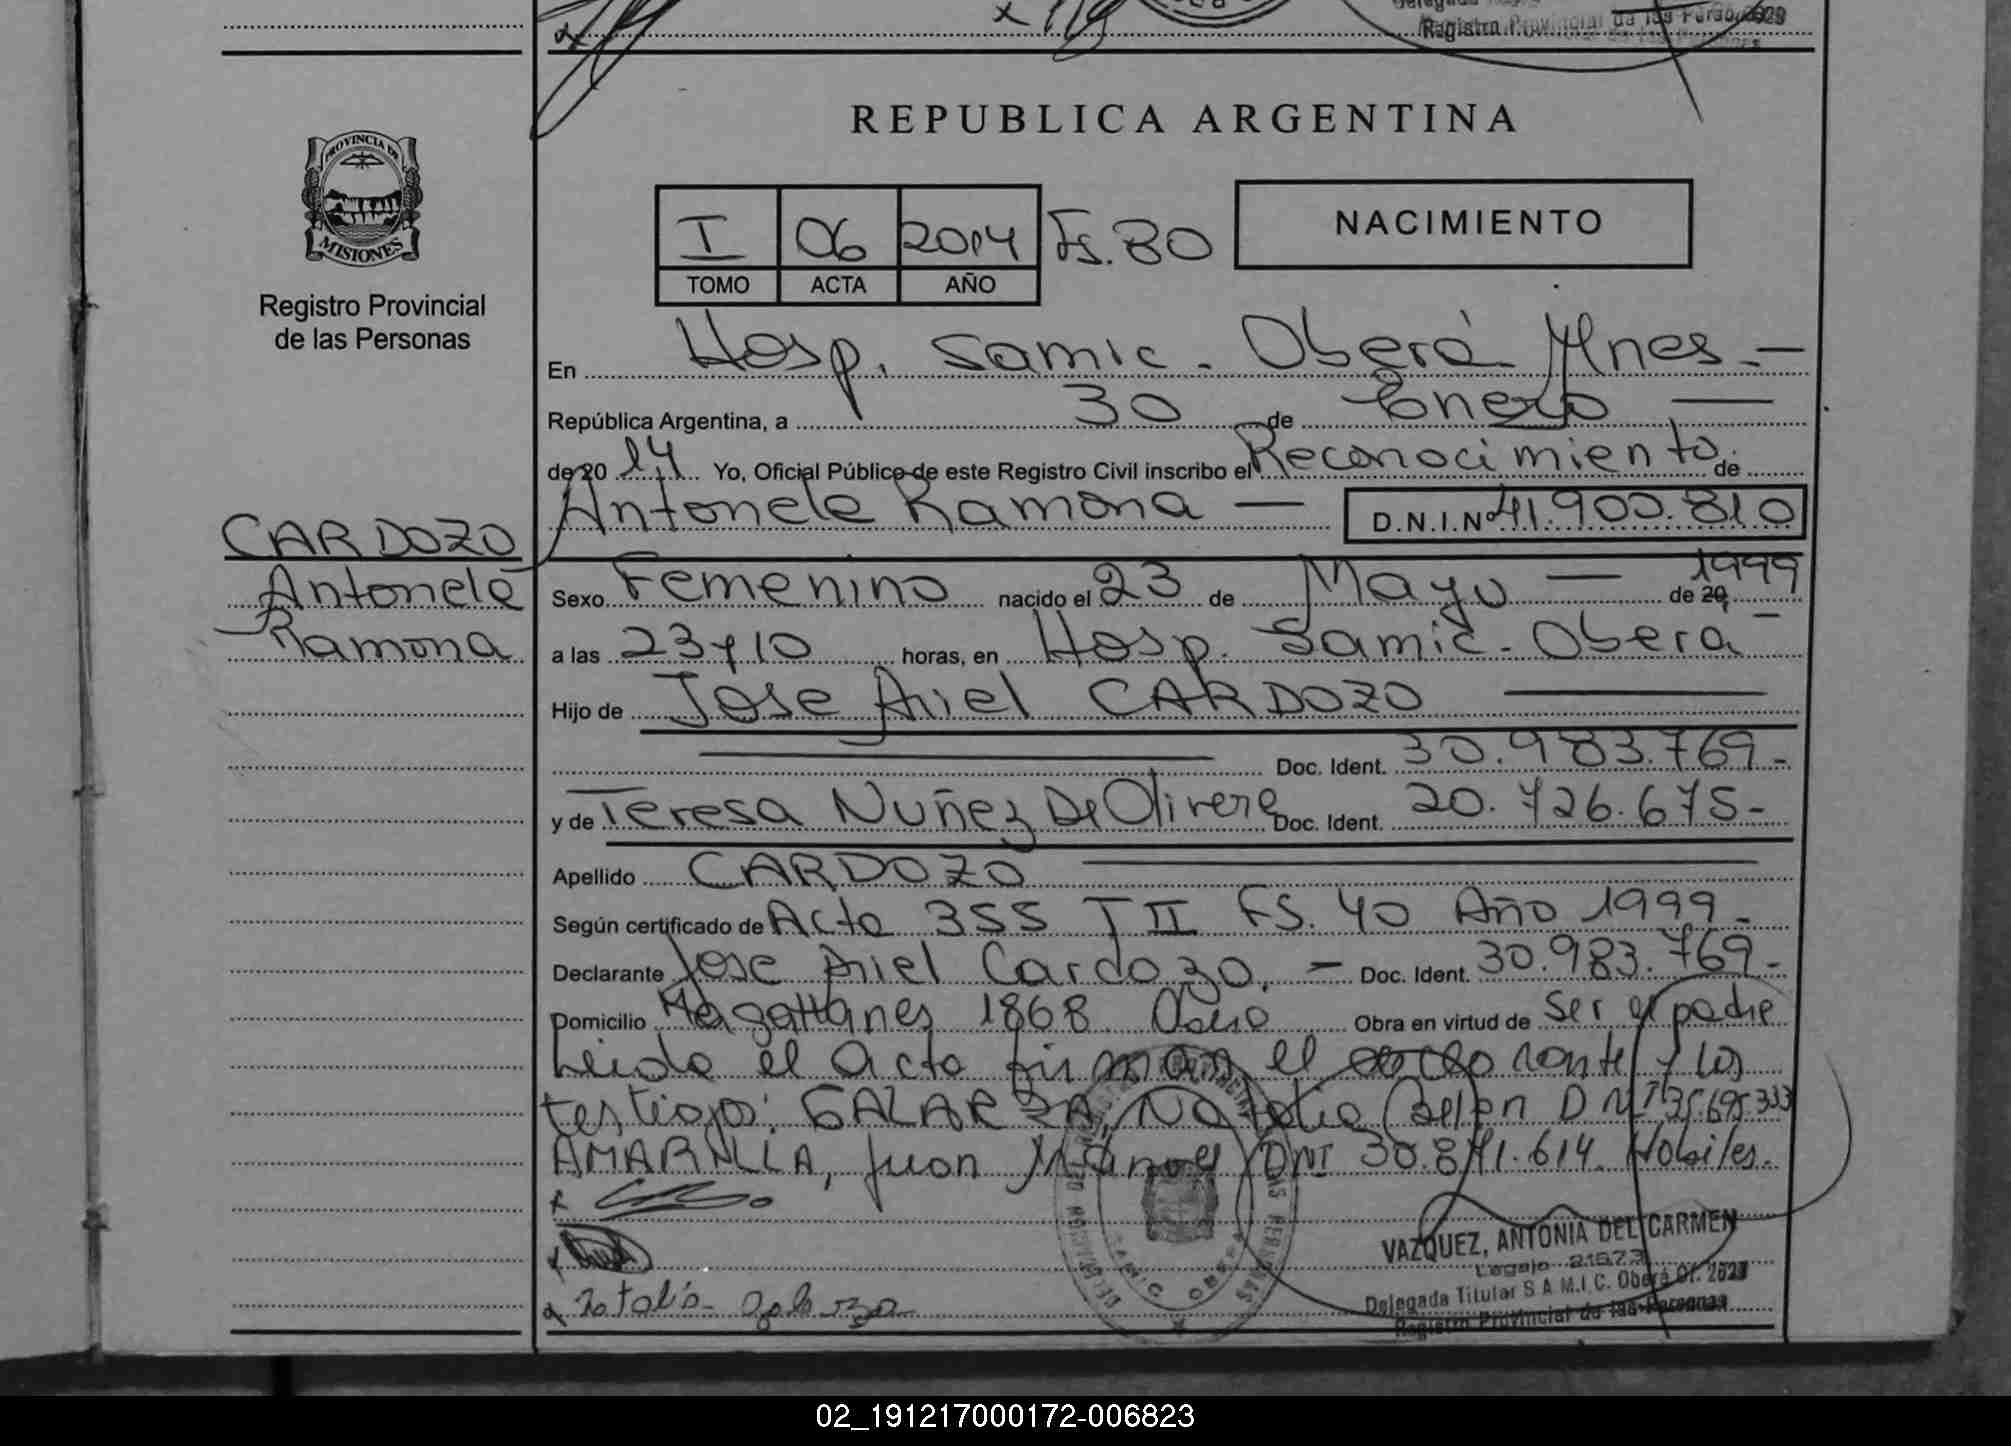 Registro Provincial de las Personas
REPUBLICA ARGENTINA
PROVINCIA DE
MISIONES
Registro Provincial
de las Personas
I 06 2014 Fs. 80
TOMO ACTA AÑO
NACIMIENTO
En Hosp. Samic. Oberá Mnes —
República Argentina, a 30 de Enero —
de 20 14 Yo, Oficial Público de este Registro Civil inscribo el Reconocimiento de
Antonela Ramona — D.N.I.Nº 41.900.810
CARDOZO
Antonela
Ramona
Sexo Femenino nacido el 23 de Mayo — de 20 1999
a las 23y10 horas, en Hosp. Samic. Oberá —
Hijo de Jose Ariel CARDOZO —
Doc. Ident. 30.983.769-
y de Teresa Nuñez De Olivera Doc. Ident. 20.726.675-
Apellido CARDOZO —
Según certificado de Acta 355 T II FS. 40 Año 1999-
Declarante Jose Ariel Cardozo. — Doc. Ident. 30.983.769-
Domicilio Magallanes 1868 Oberá Obra en virtud de ser el padre
Leida el acta firman el declarante y los
testigos: GALARZA, Natalia Belen DNI 35.695.333
AMARILLA, Juan Manuel DNI 30.841.614. Habiles.
x
x
x Natalia Galarza
SAMIC OBERA
VAZQUEZ, ANTONIA DEL CARMEN
Legajo 21573
Delegada Titular S.A.M.I.C. Oberá Of. 2023
Registro Provincial de las Personas
02_191217000172-006823